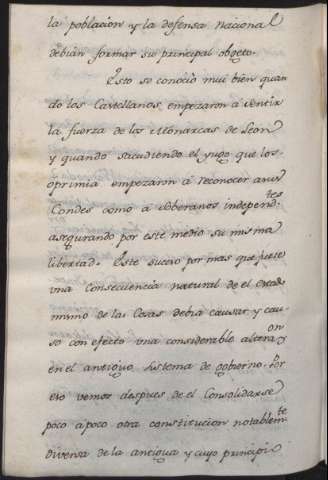 la poblacion y la defensa nacional
debian formar su principal obgeto.
Esto se conoció mui bien quan
do los Castellanos empezaron á sentir
la fuerza de los Monarcas de Leon
y quando sacudiendo el yugo que los
oprimia empezaron á reconocer a sus
Condes como á soberanos independ.tes
asegurando por este medio su misma
libertad. Este suceso por mas que fuese
una Consecuencia natural de el
mismo de las Cosas debia causar y cau
so con efecto una considerable alteraz.on
en el antiguo sistema de gobierno. Por
eso vemos despues de el Consolidarse
poco a poco otra constitucion notablem.te
diversa de la antigua y cuyo principi